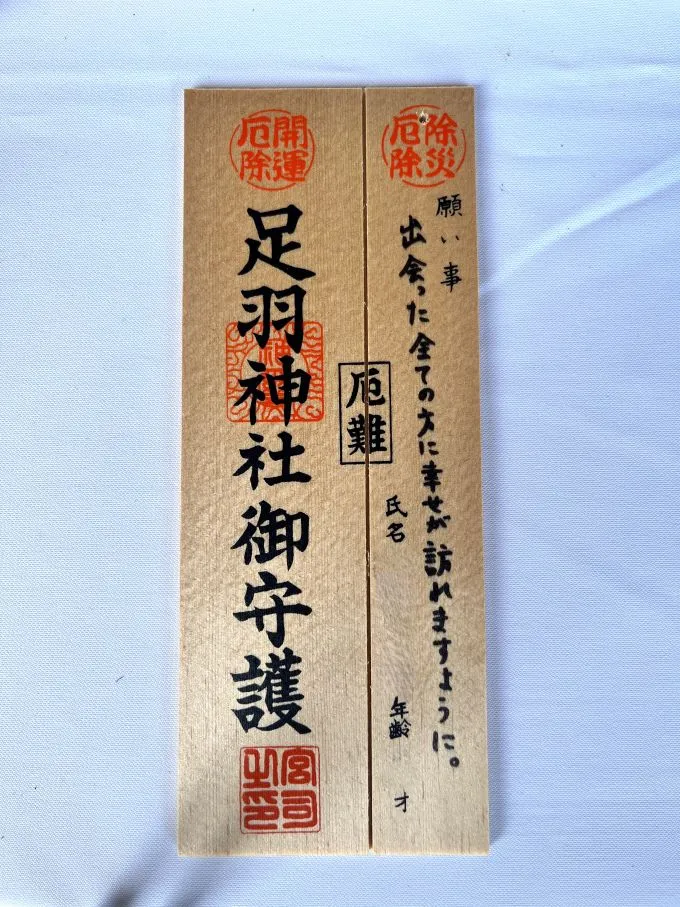 除災
厄除
願い事
出会った全ての方に幸せが訪れますように。
氏名
年齢 才
厄難
開運
厄除
足羽神社御守護
宮司
之印